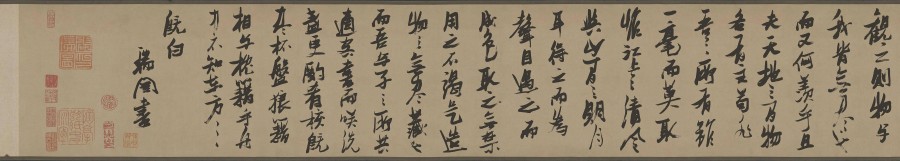 觀之則物與
我皆無盡也
而又何羨乎且
夫天地之間物
各有主苟非
吾之所有雖
一毫而莫取
惟江上之清風
與山間之明月
耳得之而為
聲目遇之而
成色取之無禁
用之不竭是造
物者之無盡藏也
而吾與子之所共
適客喜而笑洗
盞更酌肴核既
盡杯盤狼籍
相與枕籍乎舟
中不知東方之
既白
瑞圖書